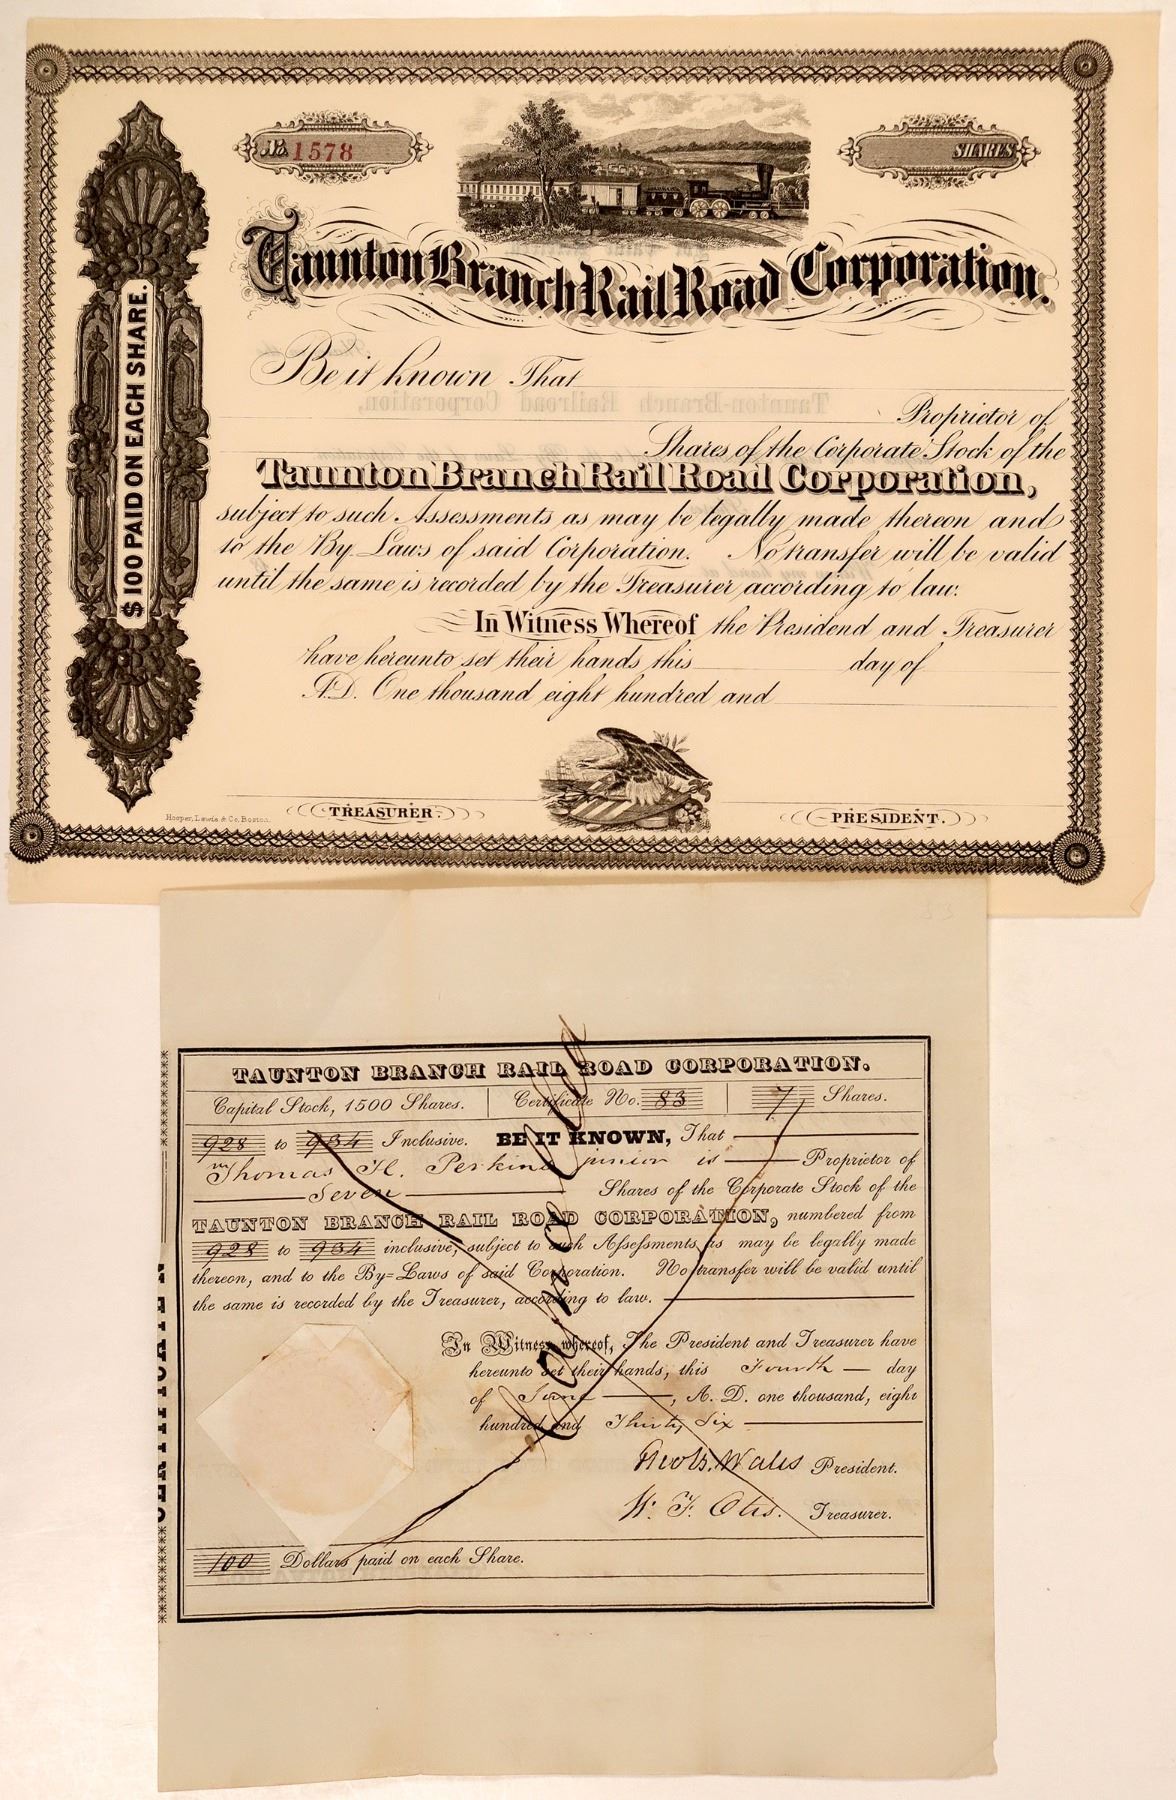 No. 1578
SHARES
Taunton Branch Rail Road Corporation.
$100 PAID ON EACH SHARE.
Be it known That
Proprietor of
Shares of the Corporate Stock of the
Taunton Branch Rail Road Corporation,
subject to such Assessments as may be legally made thereon and
to the By Laws of said Corporation. No transfer will be valid
until the same is recorded by the Treasurer according to law.
In Witness Whereof the Presidend and Treasurer
have hereunto set their hands this day of
A.D. One thousand eight hundred and
Hooper, Lewis & Co. Boston.
TREASURER.
PRESIDENT.
83
TAUNTON BRANCH RAIL ROAD CORPORATION.
Capital Stock, 1500 Shares. Certificate No. 83 7 Shares.
928 to 934 Inclusive. BE IT KNOWN, That
Thomas H. Perkins junior is Proprietor of
Seven Shares of the Corporate Stock of the
TAUNTON BRANCH RAIL ROAD CORPORATION, numbered from
928 to 934 inclusive, subject to such Assessments as may be legally made
thereon, and to the By=Laws of said Corporation. No transfer will be valid until
the same is recorded by the Treasurer, according to law.
In Witness whereof, The President and Treasurer have
hereunto set their hands, this Fourth day
of June, A. D. one thousand, eight
hundred and Thirty Six
Wales President.
W. F. Otis. Treasurer.
100 Dollars paid on each Share.
Cancelled